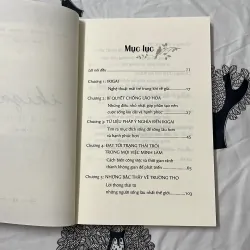 Mục lục
Lời nói đầu 11
Chương 1: IKIGAI
Nghệ thuật mãi trẻ trung khi về già
Chương 2: BÍ QUYẾT CHỐNG LÃO HÓA
Những điều nhỏ nhặt góp phần tạo nên
cuộc sống lâu dài và hạnh phúc
Chương 3: TỪ LIỆU PHÁP Ý NGHĨA ĐẾN IKIGAI
Tìm ra mục đích sống để sống lâu hơn
và hạnh phúc hơn
Chương 4: ĐẠT TỚI TRẠNG THÁI TRÔI
TRONG MỌI VIỆC MÌNH LÀM
Cách biến công việc và thời gian rảnh
thành không gian để phát triển
Chương 5: NHỮNG BẬC THẦY VỀ TRƯỜNG THỌ
Lời thông thái từ
những người sống lâu nhất thế giới